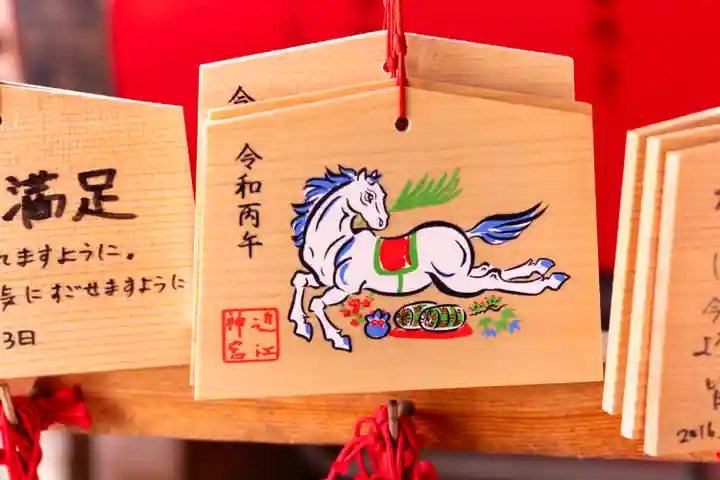 満足
れますように。
にすごせますように
3日
令
令和丙午
近江
神宮
2016.